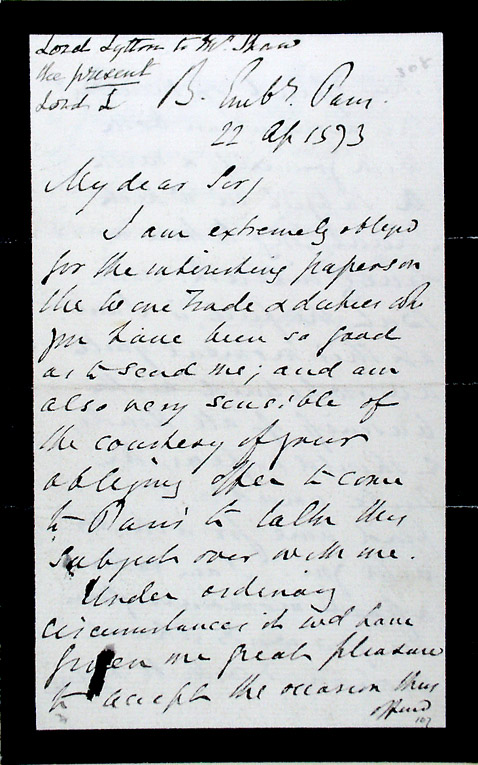 Lord Lytton to Mr. Shaw
the present
Lord L
B. Emby. Paris.
22 Ap 1873
My dear Sir,
I am extremely obliged
for the interesting papers on
the Wine Trade & duties wh
you have been so good
as to send me; and am
also very sensible of
the courtesy of your
obliging offer to come
to Paris to talk this
subject over with me.
Under ordinary
circumstances it wd have
given me great pleasure
to accept the occasion thus
offered